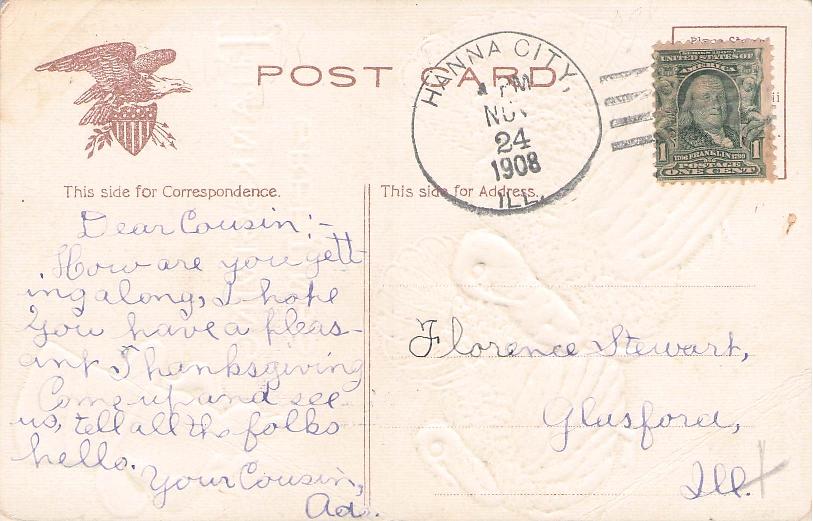 POST CARD
HANNA CITY,
PM
NOV
24
1908
ILL.
SERIES 1902
UNITED STATES OF
AMERICA
1706 FRANKLIN 1790
1 POSTAGE 1
ONE CENT
This side for Correspondence.
This side for Address.
Dear Cousin:-
How are you gett-
ing along, I hope
you have a pleas-
ant Thanksgiving
Come up and see
us, tell all the folks
hello.
Your Cousin,
Ad.
Florence Stewart,
Glasford,
Ill.